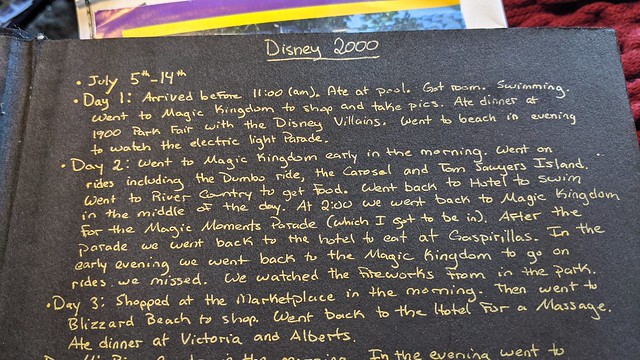 Disney 2000
• July 5th-14th
• Day 1: Arrived before 11:00 (am). Ate at pool. Got room. Swimming.
Went to Magic Kingdom to shop and take pics. Ate dinner at
1900 Park Fair with the Disney Villains. Went to beach in evening
to watch the electric light Parade.
• Day 2: Went to Magic Kingdom early in the morning. Went on
rides including the Dumbo ride, the Carosel and Tom Sawyers Island.
Went to River Country to get Food. Went back to Hotel to swim
in the middle of the day. At 2:00 we went back to Magic Kingdom
For the Magic Moments Parade (which I got to be in). After the
parade we went back to the hotel to eat at Gaspirillas. In the
early evening we went back to the Magic Kingdom to go on
rides we missed. We watched the Fireworks from in the park.
• Day 3: Shopped at the Marketplace in the morning. Then went to
Blizzard Beach to shop. Went back to the Hotel For a Massage.
Ate dinner at Victoria and Alberts.
in the morning. In the evening went to